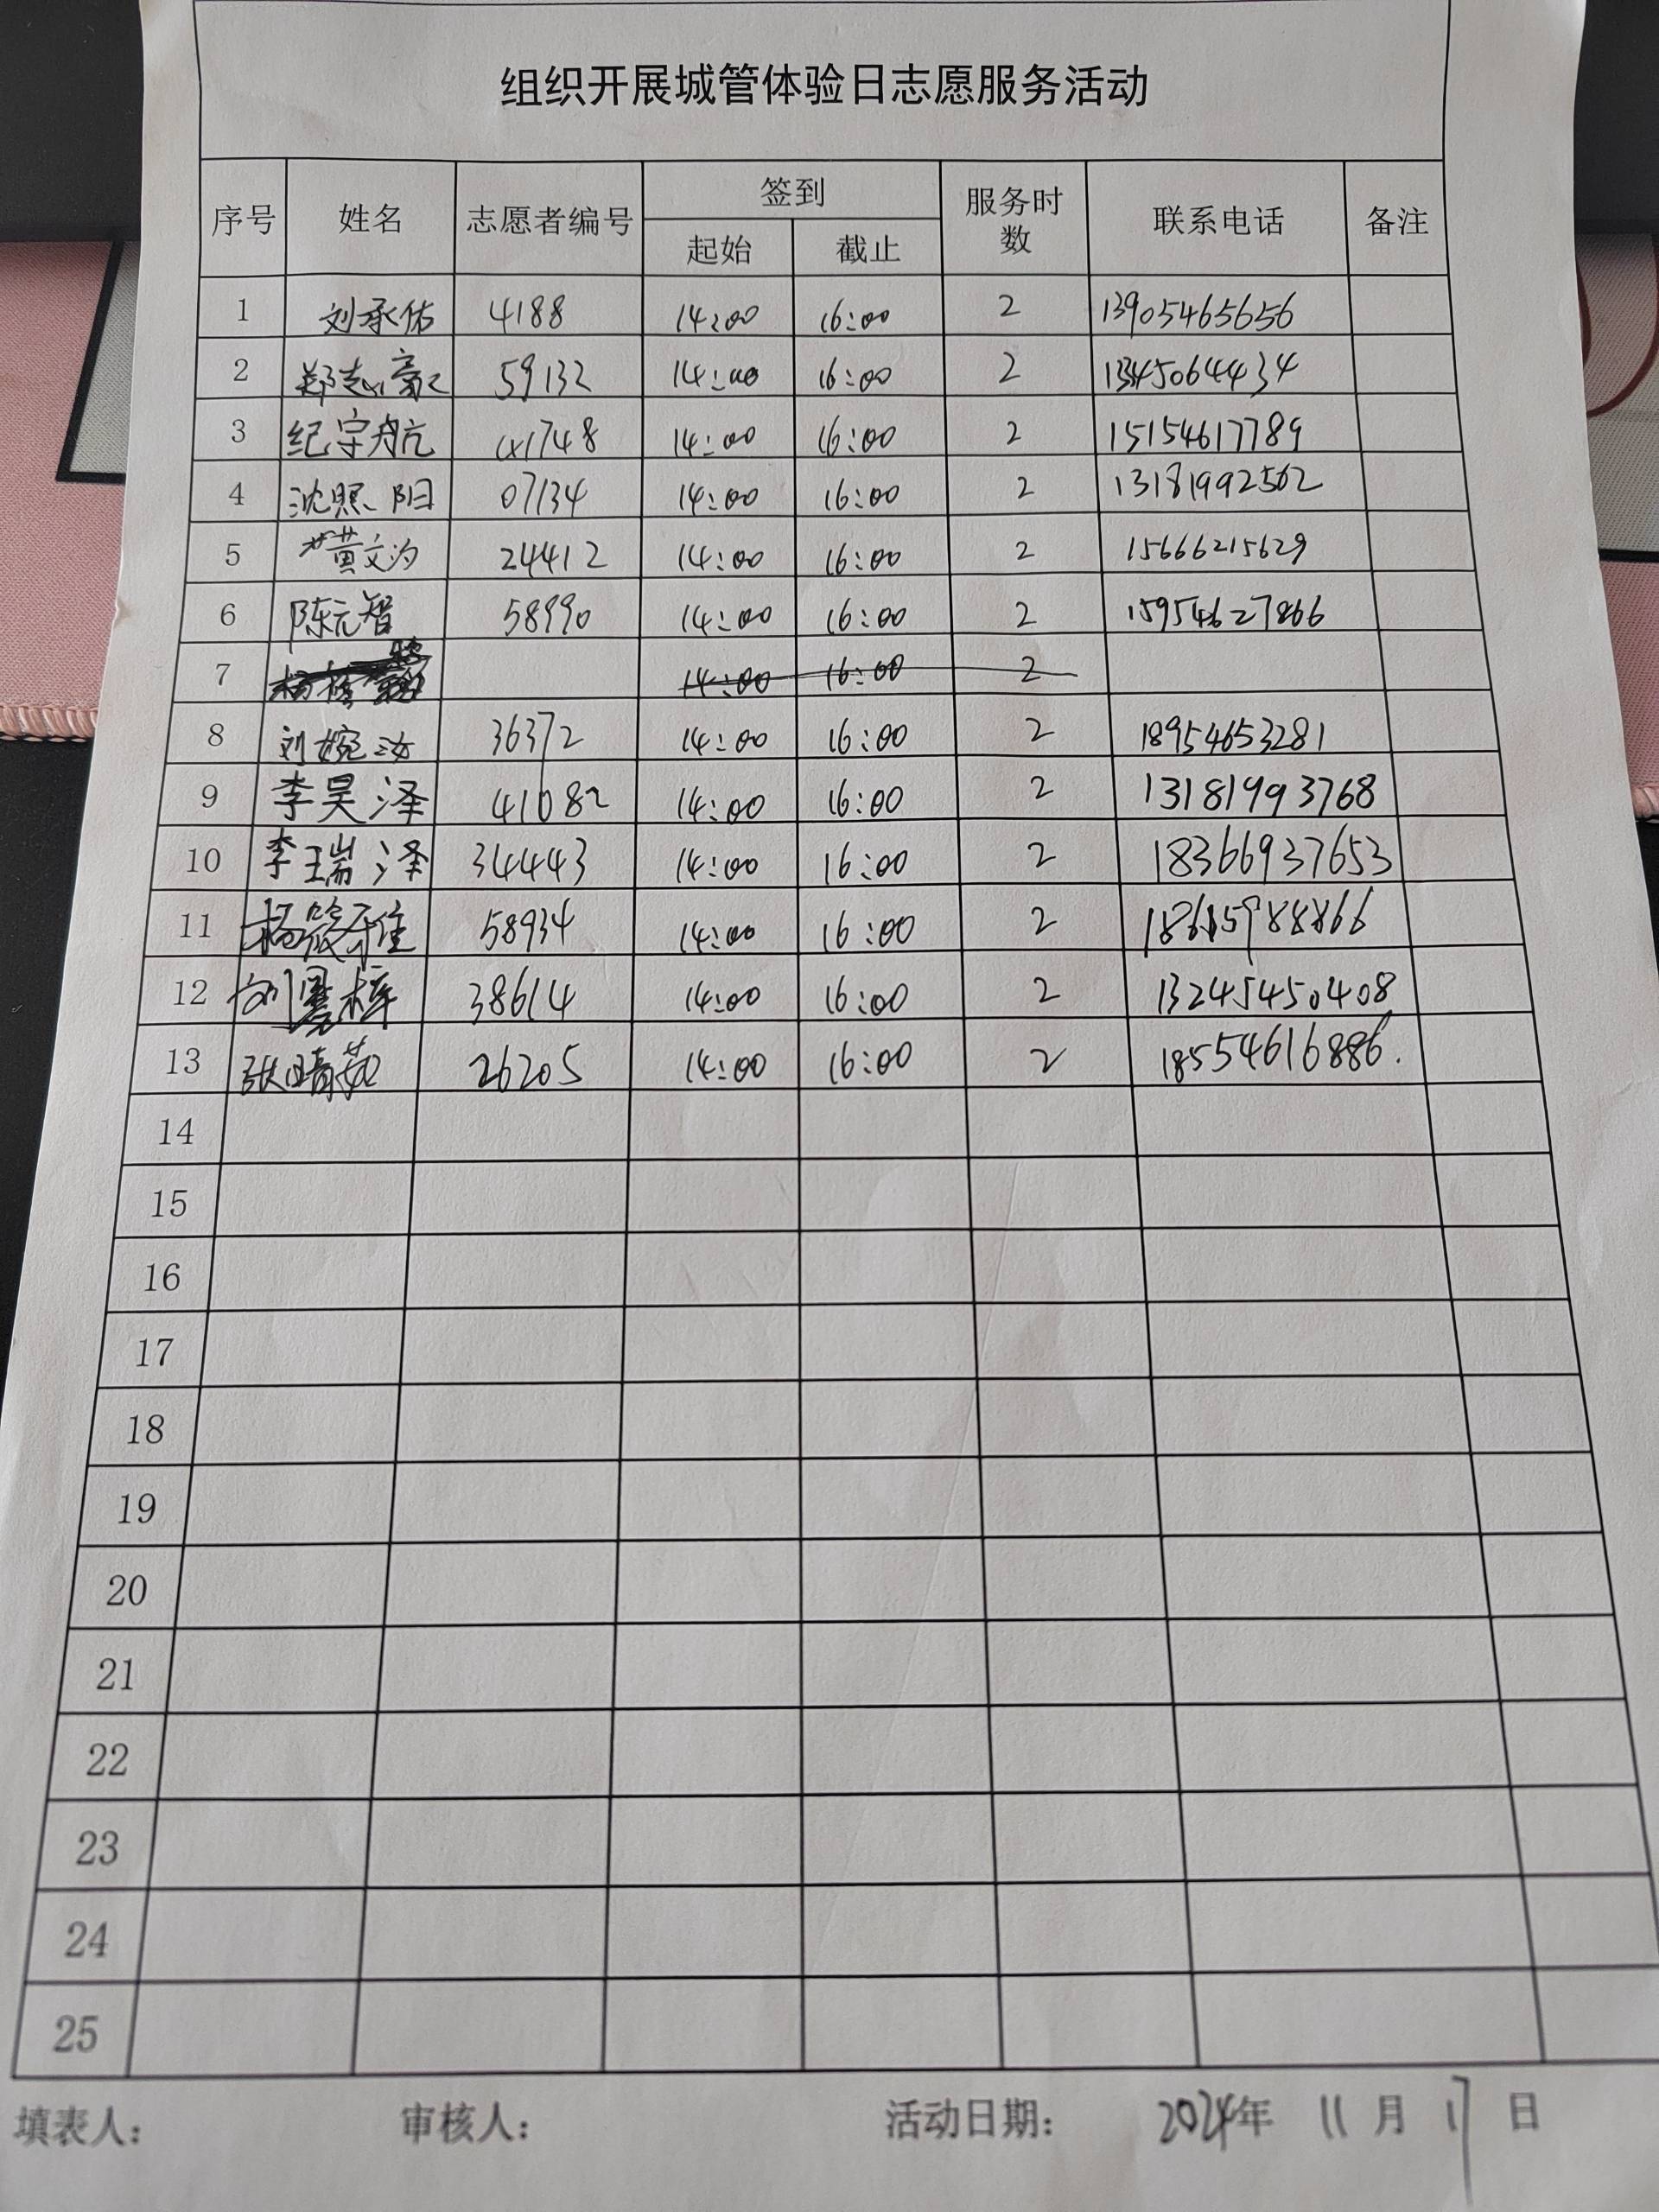 组织开展城管体验日志愿服务活动
序号 姓名 志愿者编号 签到 服务时数 联系电话 备注
起始 截止
1 刘承佑 4188 14:00 16:00 2 13905465656
2 郑志豪 59132 14:00 16:00 2 13450644434
3 纪宇航 41748 14:00 16:00 2 15154617789
4 沈熙阳 07134 14:00 16:00 2 13181992502
5 黄文汐 24412 14:00 16:00 2 15666215629
6 陈元智 58990 14:00 16:00 2 15954627866
7 14:00 16:00 2
8 刘婉汝 36372 14:00 16:00 2 18954653281
9 李昊泽 41082 14:00 16:00 2 13181993768
10 李瑞泽 34443 14:00 16:00 2 18366937653
11 58934 14:00 16:00 2
12 38614 14:00 16:00 2 132454450408
13 张晴茹 26205 14:00 16:00 2 18554616886.
14
15
16
17
18
19
20
21
22
23
24
25
填表人: 审核人: 活动日期: 2024年 11月 17日